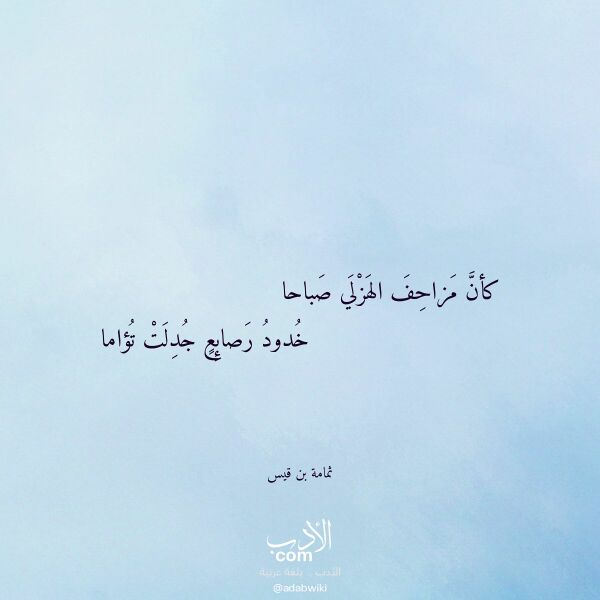 كأنَّ مَزاحِفَ الهَزْلَي صَباحا
خُدودُ رَصايِعٍ جُدِلَتْ تُؤاما
ثمامة بن قيس
الأدب
com
الأدب .. بلغة عربية
@adabwiki